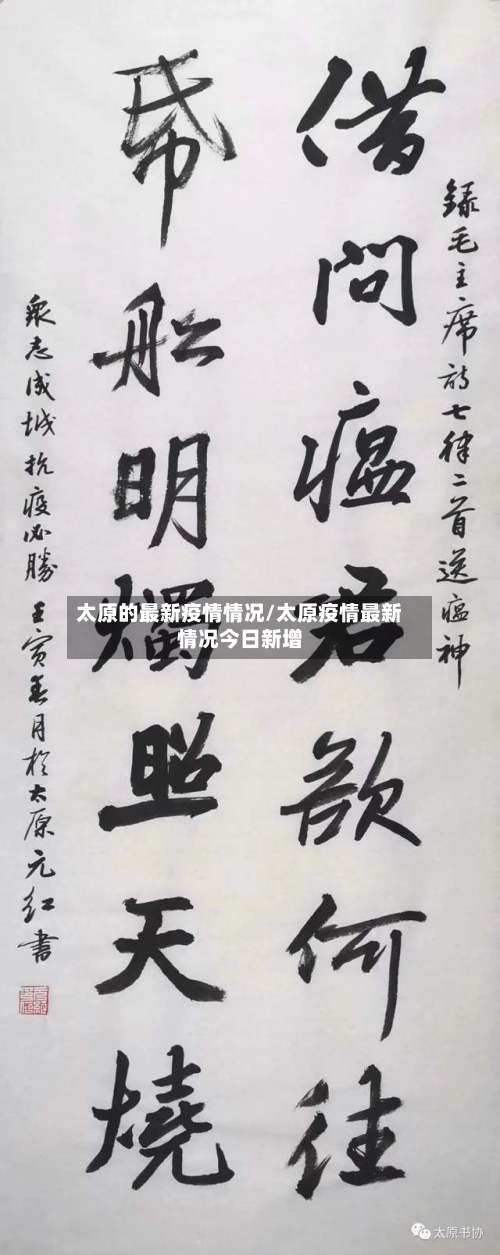 録毛主席诗七律二首送瘟神
借问瘟君欲何往
帋船明燭照天燒
衆志成城 抗疫必勝 壬寅春月於太原元红書
太原的最新疫情情况/太原疫情最新
情况今日新增
太原书协